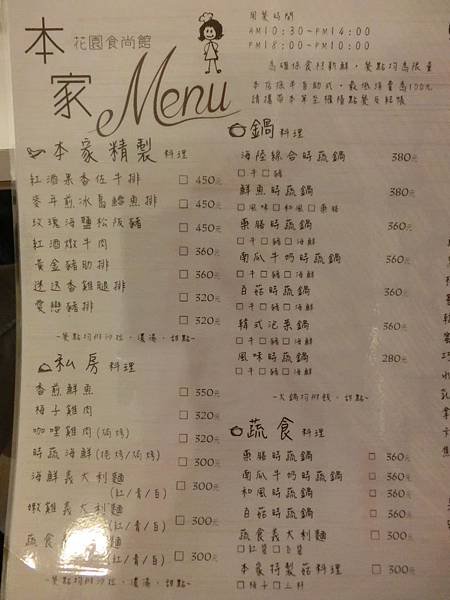 本家
花園食尚館
Menu
用餐時間
AM10:30~PM14:00
PM18:00~PM10:00
為確保食材新鮮,餐點均為限量
本店採半自助式,最低消費為100元
請攜帶本單至櫃檯點餐及結帳
本家精製 料理
紅酒果香佐牛排 □ 450元
麥年煎冰島鱈魚排 □ 450元
玫瑰海鹽松阪豬 □ 450元
紅酒燉牛肉 □ 360元
黃金豬肋排 □ 360元
迷迭香雞腿排 □ 320元
愛戀豬排 □ 320元
~餐點均附沙拉、濃湯、甜點~
私房 料理
香煎鮮魚 □ 350元
椒子雞肉 □ 320元
咖哩雞肉(焗烤) □ 320元
時蔬海鮮(焗烤) □ 300元
海鮮義大利麵
(紅/青/白) □ 300元
燉雞義大利麵
(紅/青/白) □ 300元
蔬食 麵
(紅/青/白) □ 300元
~餐點均附沙拉、濃湯、甜點~
鍋 料理
海陸綜合時蔬鍋 380元
□牛□豬
鮮魚時蔬鍋 380元
□風味□和風□藥膳
藥膳時蔬鍋 360元
□牛□豬□海鮮
南瓜牛奶時蔬鍋 360元
□牛□豬□海鮮
白菇時蔬鍋 360元
□牛□豬□海鮮
韓式泡菜鍋 360元
□牛□豬□海鮮
風味時蔬鍋 280元
□牛□豬□海鮮
~火鍋均附飯、甜點~
蔬食 料理
藥膳時蔬鍋 □ 360元
南瓜牛奶時蔬鍋 □ 360元
和風時蔬鍋 □ 360元
白菇時蔬鍋 □ 360元
蔬食義大利麵 □ 300元
□紅醬□白醬
本家特製菇料理 □ 300元